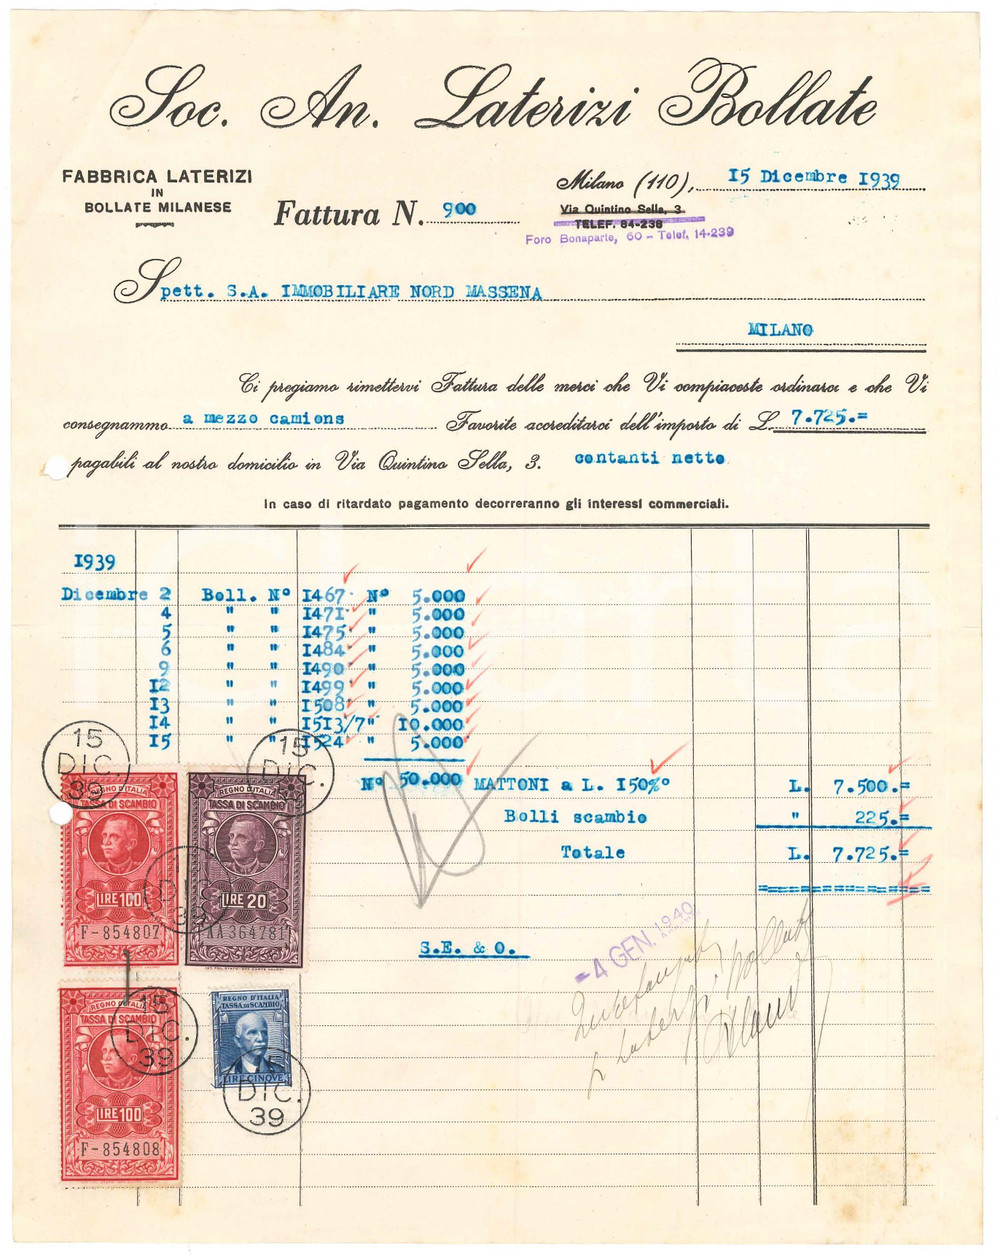 Soc. An. Laterizi Bollate
FABBRICA LATERIZI
IN
BOLLATE MILANESE
Fattura N. 900
Milano (110), 15 Dicembre 1939
Via Quintino Sella, 3
TELEF. 84-239
Foro Bonaparte, 60 - Telef. 14-239
Spett. S.A. IMMOBILIARE NORD MASSENA
MILANO
Ci pregiamo rimettervi Fattura delle merci che Vi compiaceste ordinarci e che Vi
consegnammo a mezzo camions Favorite accreditarci dell'importo di L. 7.725.=
pagabili al nostro domicilio in Via Quintino Sella, 3. contanti netto
In caso di ritardato pagamento decorreranno gli interessi commerciali.
1939
Dicembre 2 Boll. N° 1467 N° 5.000
4 " " 1471 " 5.000
5 " " 1475 " 5.000
6 " " 1484 " 5.000
9 " " 1490 " 5.000
12 " " 1499 " 5.000
13 " " 1508 " 5.000
14 " " 1513/7 " 10.000
15 " " 1524 " 5.000
N° 50.000 MATTONI a L. 150%° L. 7.500.=
Bolli scambio " 225.=
Totale L. 7.725.=
S.E. & O.
-4 GEN. 1940
15
DIC.
39
15
DIC.
REGNO D'ITALIA
TASSA DI SCAMBIO
LIRE 100
F-854807
REGNO D'ITALIA
TASSA DI SCAMBIO
LIRE 20
AA364781
39
REGNO D'ITALIA
TASSA DI SCAMBIO
LIRE 100
F-854808
15
DIC.
39
REGNO D'ITALIA
TASSA DI SCAMBIO
LIRE CINQUE
DIC.
39